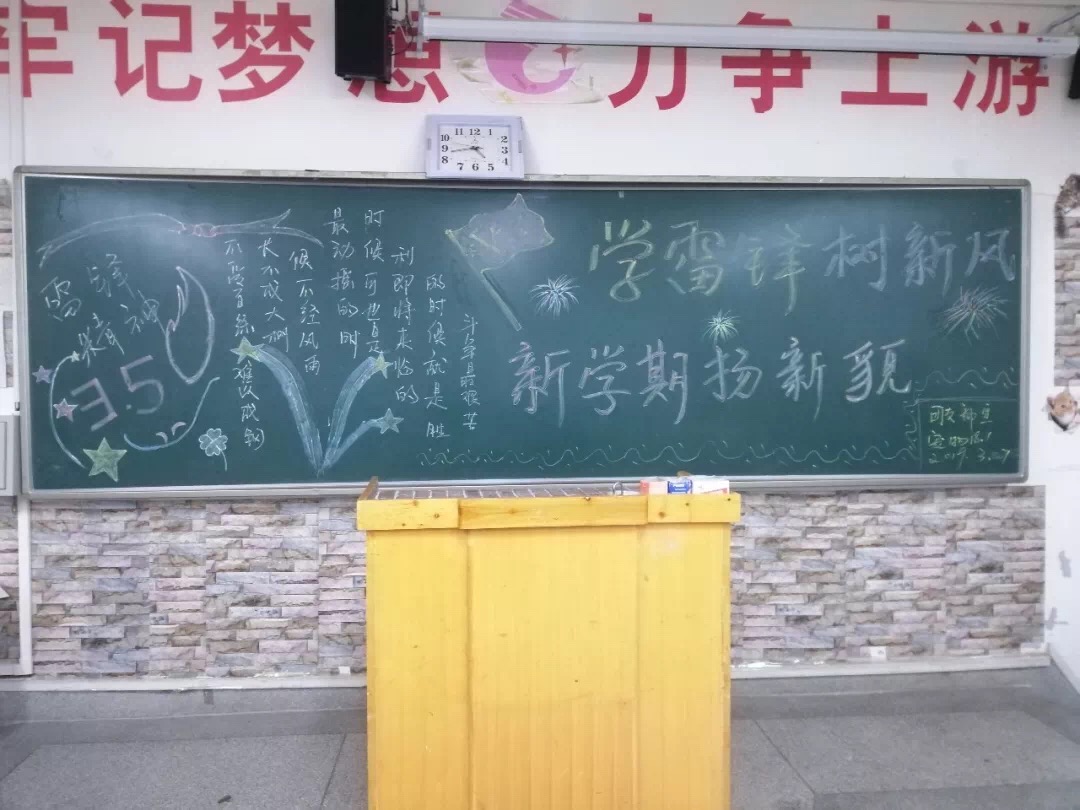 牢记梦想 力争上游
学雷锋树新风
新学期扬新貌
雷锋
精神
3.5
斗争最艰苦
的时候就是胜
利即将来临的
时候可也是
最动摇的时
候不经风雨
长不成大树
不受百炼
难以成钢
2019.3.07